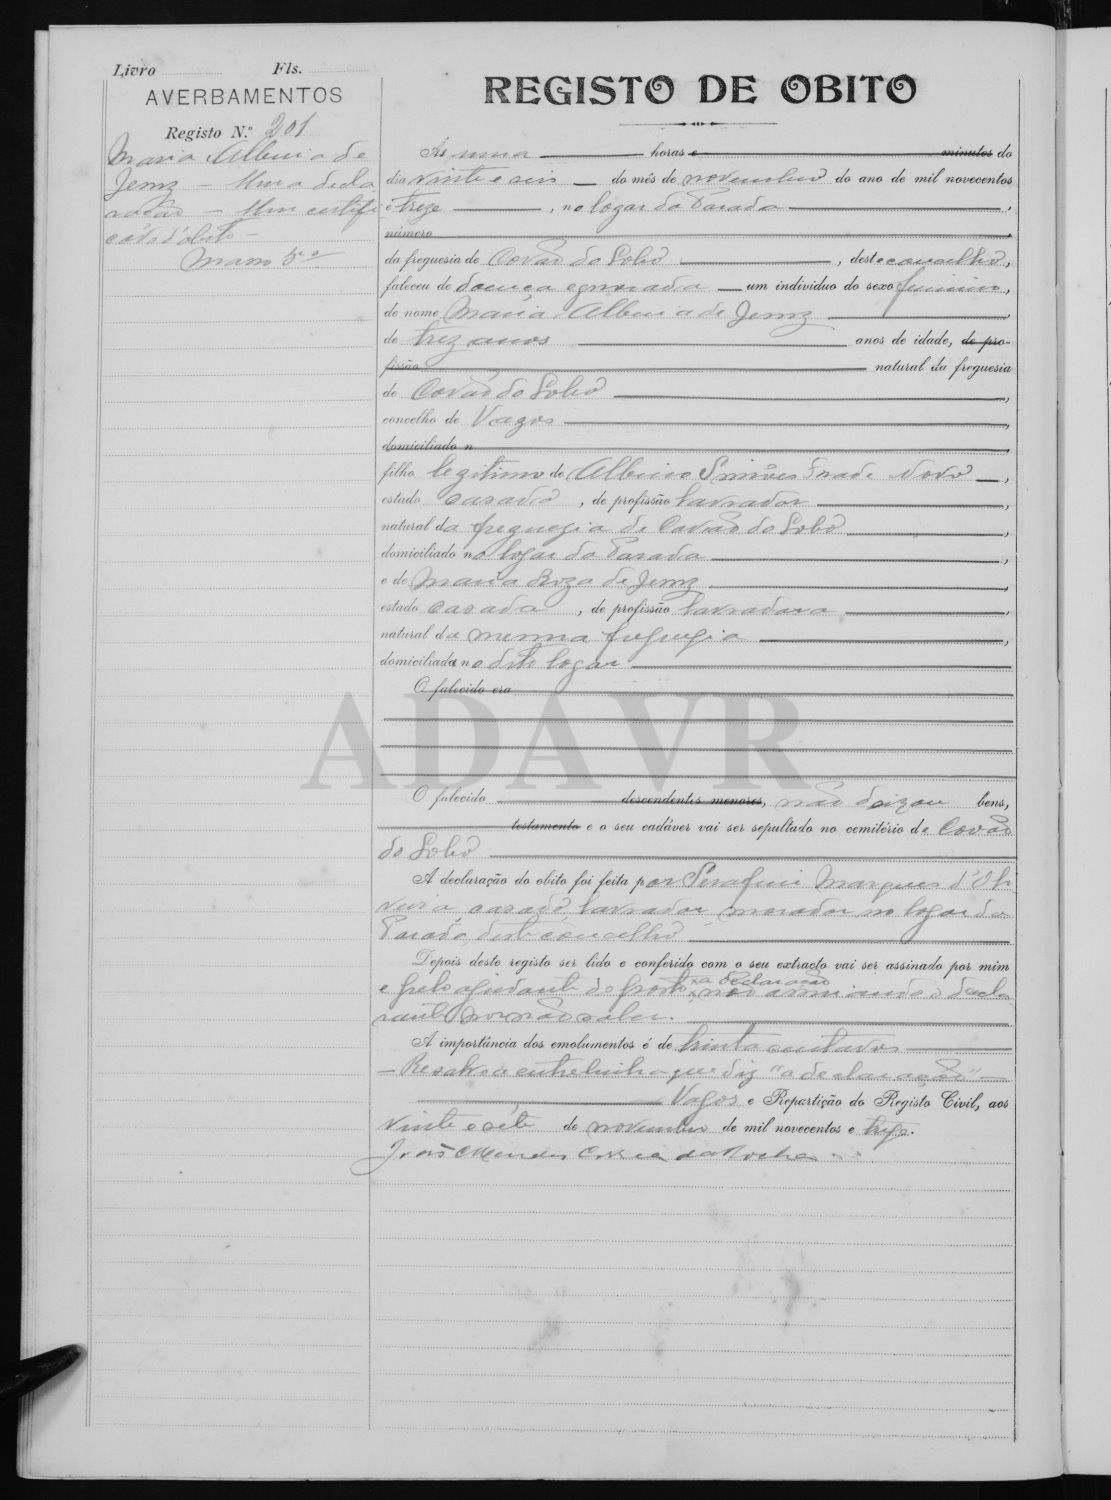 Livro Fls.
AVERBAMENTOS
Registo N.º 201
Maria Albina de
Jemz — Uma decla
ração — Um certifi
cado d'obito —
Maço 5.º
REGISTO DE OBITO
As uma horas e minutos do
dia vinte e seis do mês de novembro do ano de mil novecentos
e treze, no logar da Parada,
número
da freguesia de Covão do Lobo, deste concelho,
faleceu de doença egnorada um individuo do sexo feminino,
de nome Maria Albina de Jemz
de trez anos anos de idade, de pro-
fissão natural da freguesia
de Covão do Lobo,
concelho de Vagos,
domiciliado n
filho legitimo de Albino Simões Frade Novo,
estado casado, de profissão lavrador,
natural da freguezia de Covão do Lobo,
domiciliado no logar da Parada,
e de Maria Roza de Jemz,
estado casada, de profissão lavradora,
natural da mesma freguezia,
domiciliada no dito logar
O falecido era
ADAVR
O falecido descendentes menores, não deixou bens,
testamento e o seu cadáver vai ser sepultado no cemitério de Covão
do Lobo
A declaração do obito foi feita por Serafim Marques d'Oli
veira casado lavrador, morador no logar da
Parada, deste concelho
Depois deste registo ser lido e conferido com o seu extracto vai ser assinado por mim
a declaração
e pelo ajudante do posto não assinando o decla
rante por não saber.
A importância dos emolumentos é de trinta centavos
— Resalvo a entrelinha que diz "a declaração" —
Vagos e Repartição do Registo Civil, aos
vinte e sete de novembro de mil novecentos e treze.
João Mendes Correia da Rocha